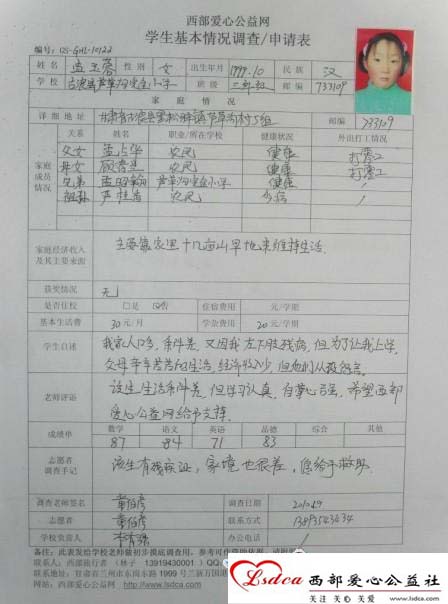 西部爱心公益网
学生基本情况调查/申请表
编号: GS-GHL-10122
姓名 孟玉蓉 性别 女 出生年月 1999.10 民族 汉
学校 班级 邮编 733109
家庭情况
详细地址 邮编 733109
关系 姓名 职业/所在学校 健康状况 外出打工情况
家庭成员情况
父女 孟占华 农民 健康 打零工
母女 农民 健康 打零工
兄弟 健康 /
祖孙 芦桂兰 农民 多病 /
家庭经济收入及其主要来源 主要靠家里十几亩山旱地来维持生活.
获奖情况 无
是否住校 □是 □否 住宿费用 元/学期
基本生活费 30元/月 学杂费 20元/学期
学生自述 我家人口多, 条件差, 又因我左下肢残病, 但为了让我上学
父母辛辛苦苦的生活, 经济收入少, 但他们从没怨言.
老师评语 该生生活条件差, 但学习认真, 自尊心强, 希望西部
爱心公益网给予支持.
成绩单 数学 语文 英语 品德 综合 其他
87 84 71 83
志愿者调查手记 该生有残疾证, 家境也很差, 急给予救助.
调查老师签名 调查日期
志愿者 联系方式
学校负责人 办公电话 /
备注: 此表发给学校老师做初步摸底调查用, 参考可作
联系方式: 西部旅行者 (林子 13919430001) QQ
联系地址: 甘肃省兰州市东岗东路1999号兰新万国港
网站: 西部爱心公益网 www.lsdca.
Lsdca 西部爱心公益社
关注 关心 关爱 www.lsdca.com